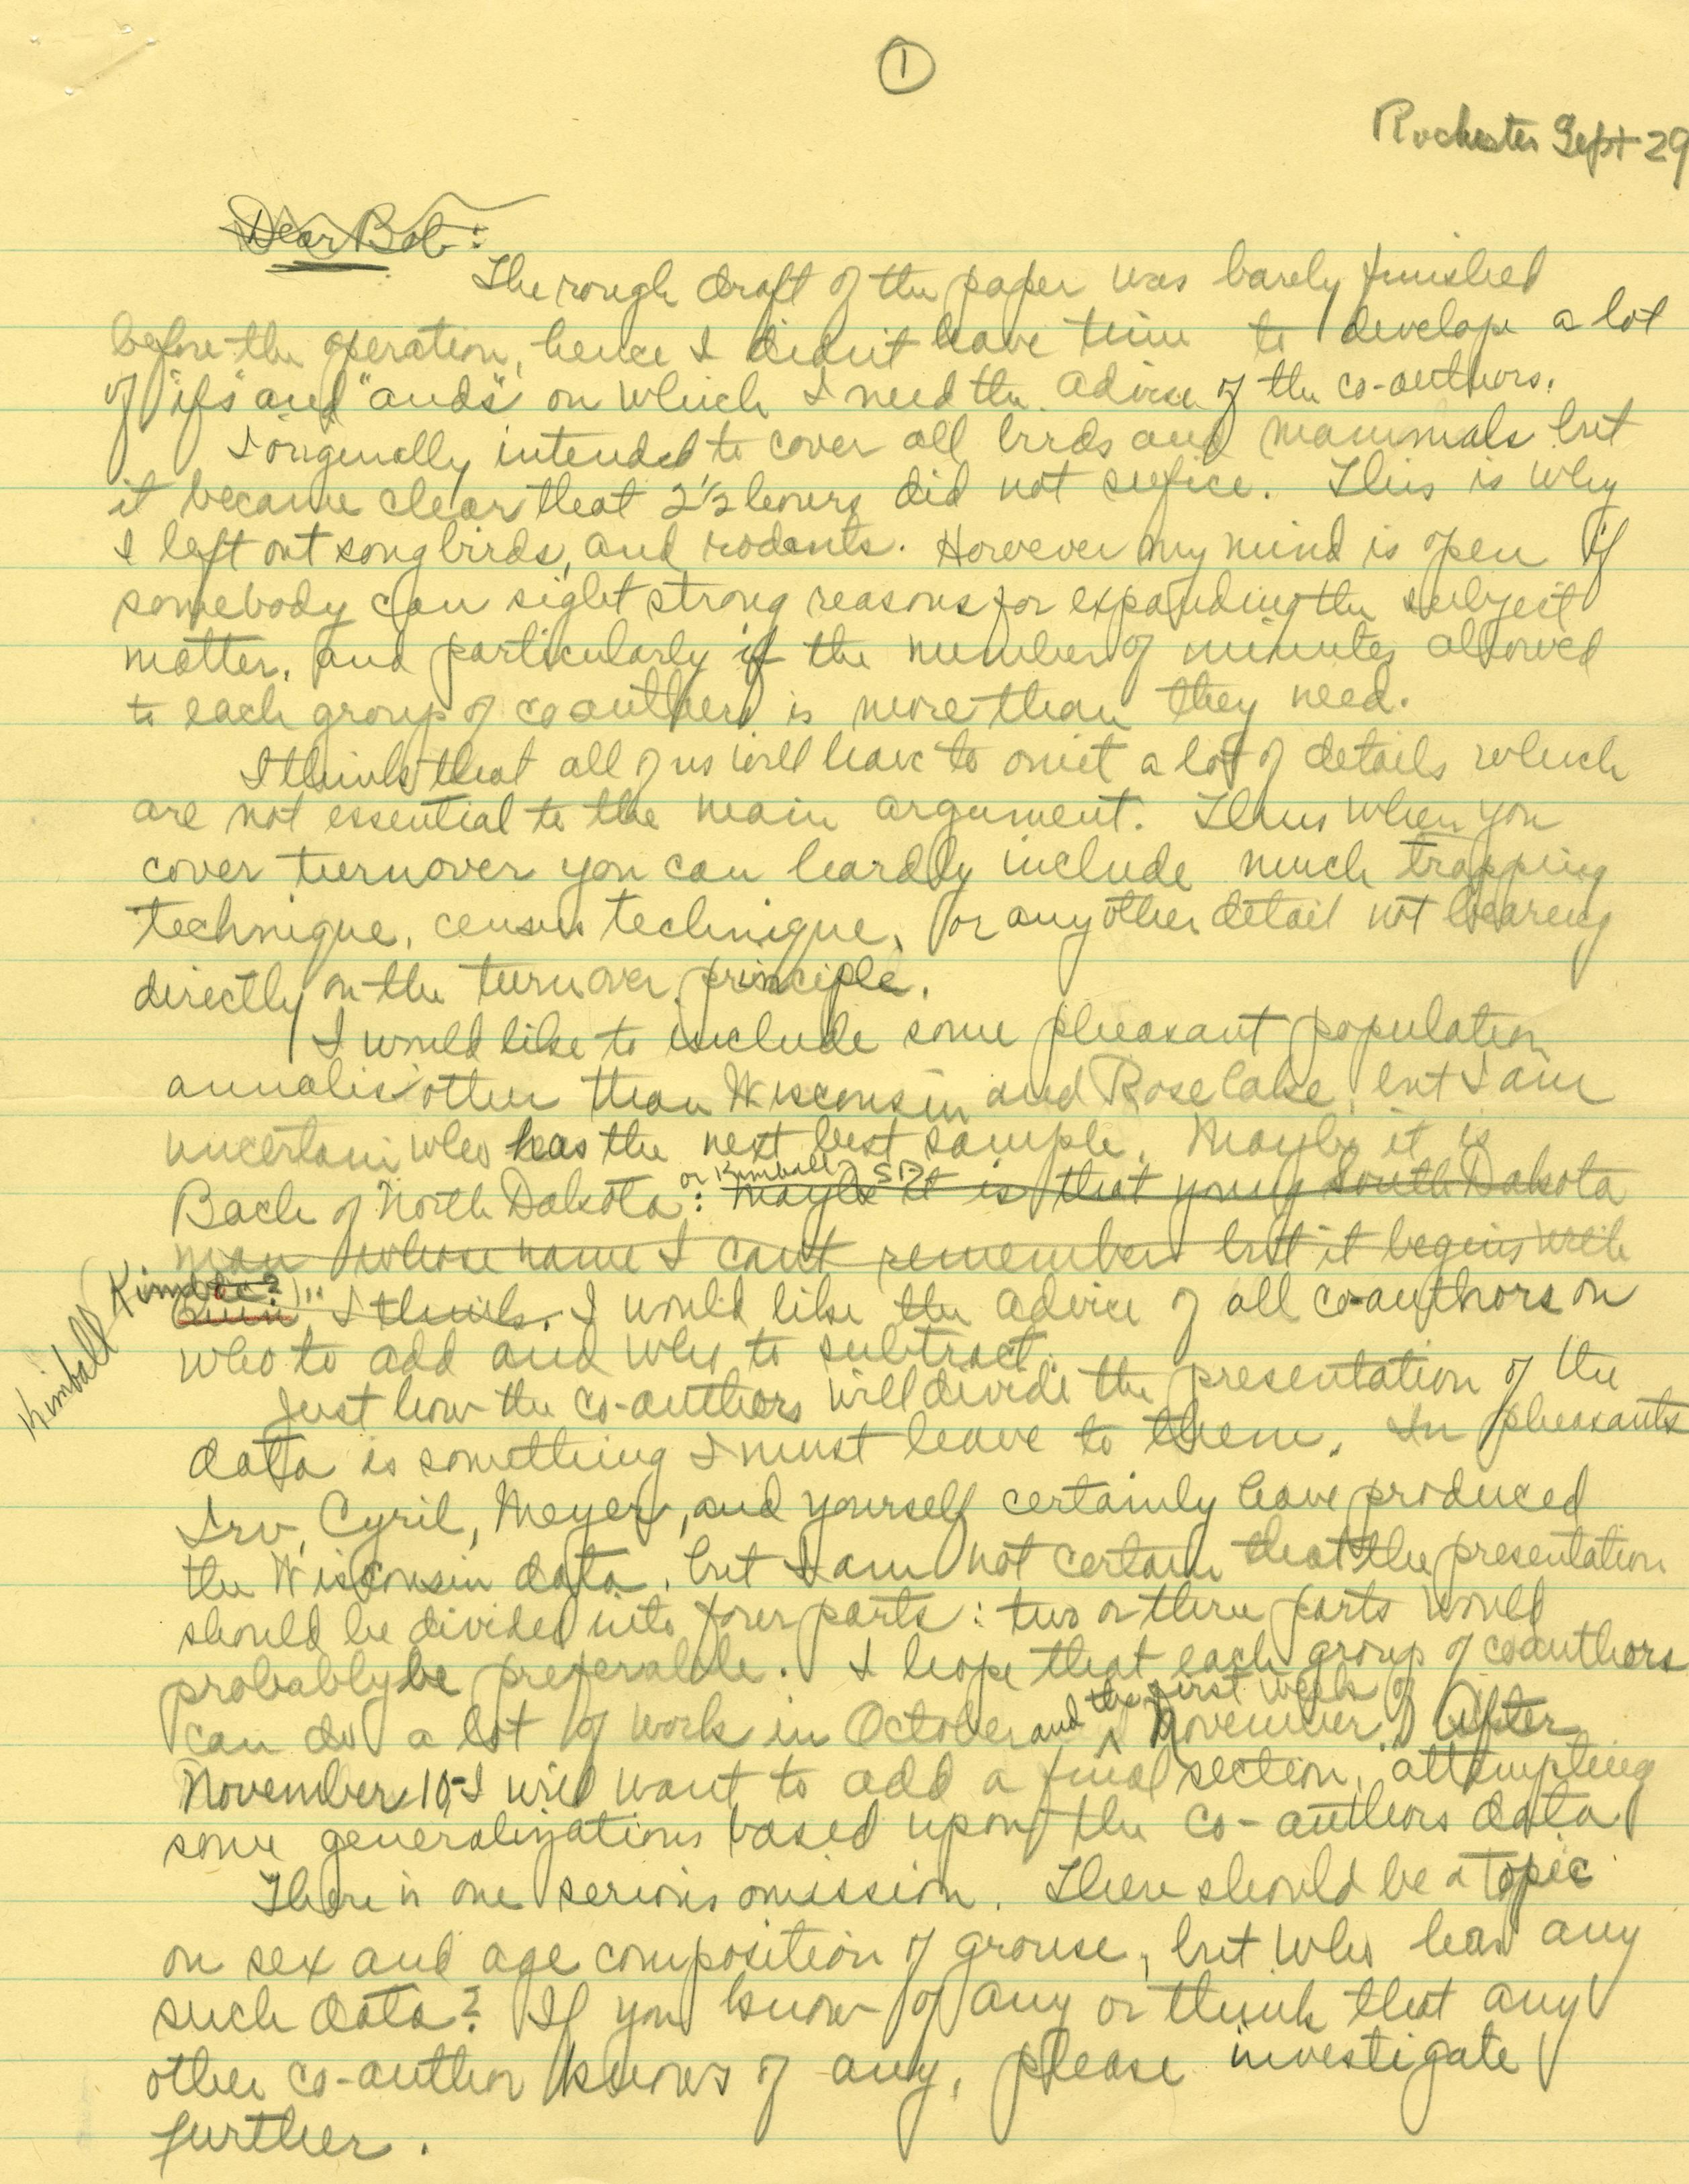 1
Rochester Sept 29
Dear Bob:
The rough draft of the paper was barely finished
before the operation, hence I didn't have time to develope a lot
of "ifs" and "ands" on which I need the advice of the co-authors.
I originally intended to cover all birds and mammals but
it became clear that 2 1/2 hours did not sufice. This is why
I left out songbirds, and rodents. However my mind is open if
somebody can sight strong reasons for expanding the subject
matter, and particularly if the number of minutes allowed
to each group of coauthors is more than they need.
I think that all of us will have to omit a lot of details which
are not essential to the main argument. Thus when you
cover turnover you can hardly include much trapping
technique, census technique, or any other detail not bearing
directly on the turnover principle.
I would like to include some pheasant population
annalis other than Wisconsin and Rose Lake, but I am
uncertain who has the next best sample. Maybe it is
or Kimball SD
Bach of North Dakota: maybe it is that young South Dakota
man whose name I can't remember but it begins with
Kimball
"Quin" I think. I would like the advice of all co-authors on
who to add and who to subtract.
Just how the co-authors will divide the presentation of the
data is something I must leave to them. In pheasants
Irv, Cyril, Meyer, and yourself certainly have produced
the Wisconsin data, but I am not certain that the presentation
should be divided into four parts: two or three parts would
probably be preferable. I hope that each group of coauthors
the first week of
can do a lot of work in October and November. After
November 10, I will want to add a final section, attempting
some generalizations based upon the co-authors data
There is one serious omission. There should be a topic
on sex and age composition of grouse, but who has any
such data? If you know of any or think that any
other co-author knows of any, please investigate
further.